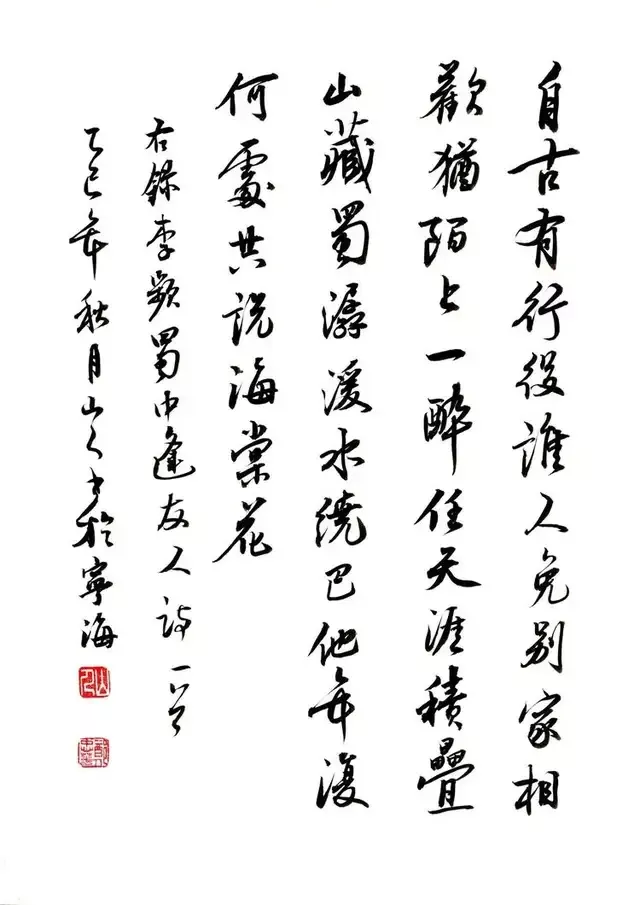 自古有行役誰人免別家相
歡猶陌上一醉任天涯積疊
山藏蜀潺湲水繞巴他年復
何處共說海棠花
右錄李頻蜀中逢友人詩一首
乙巳年秋月山人書於寧海